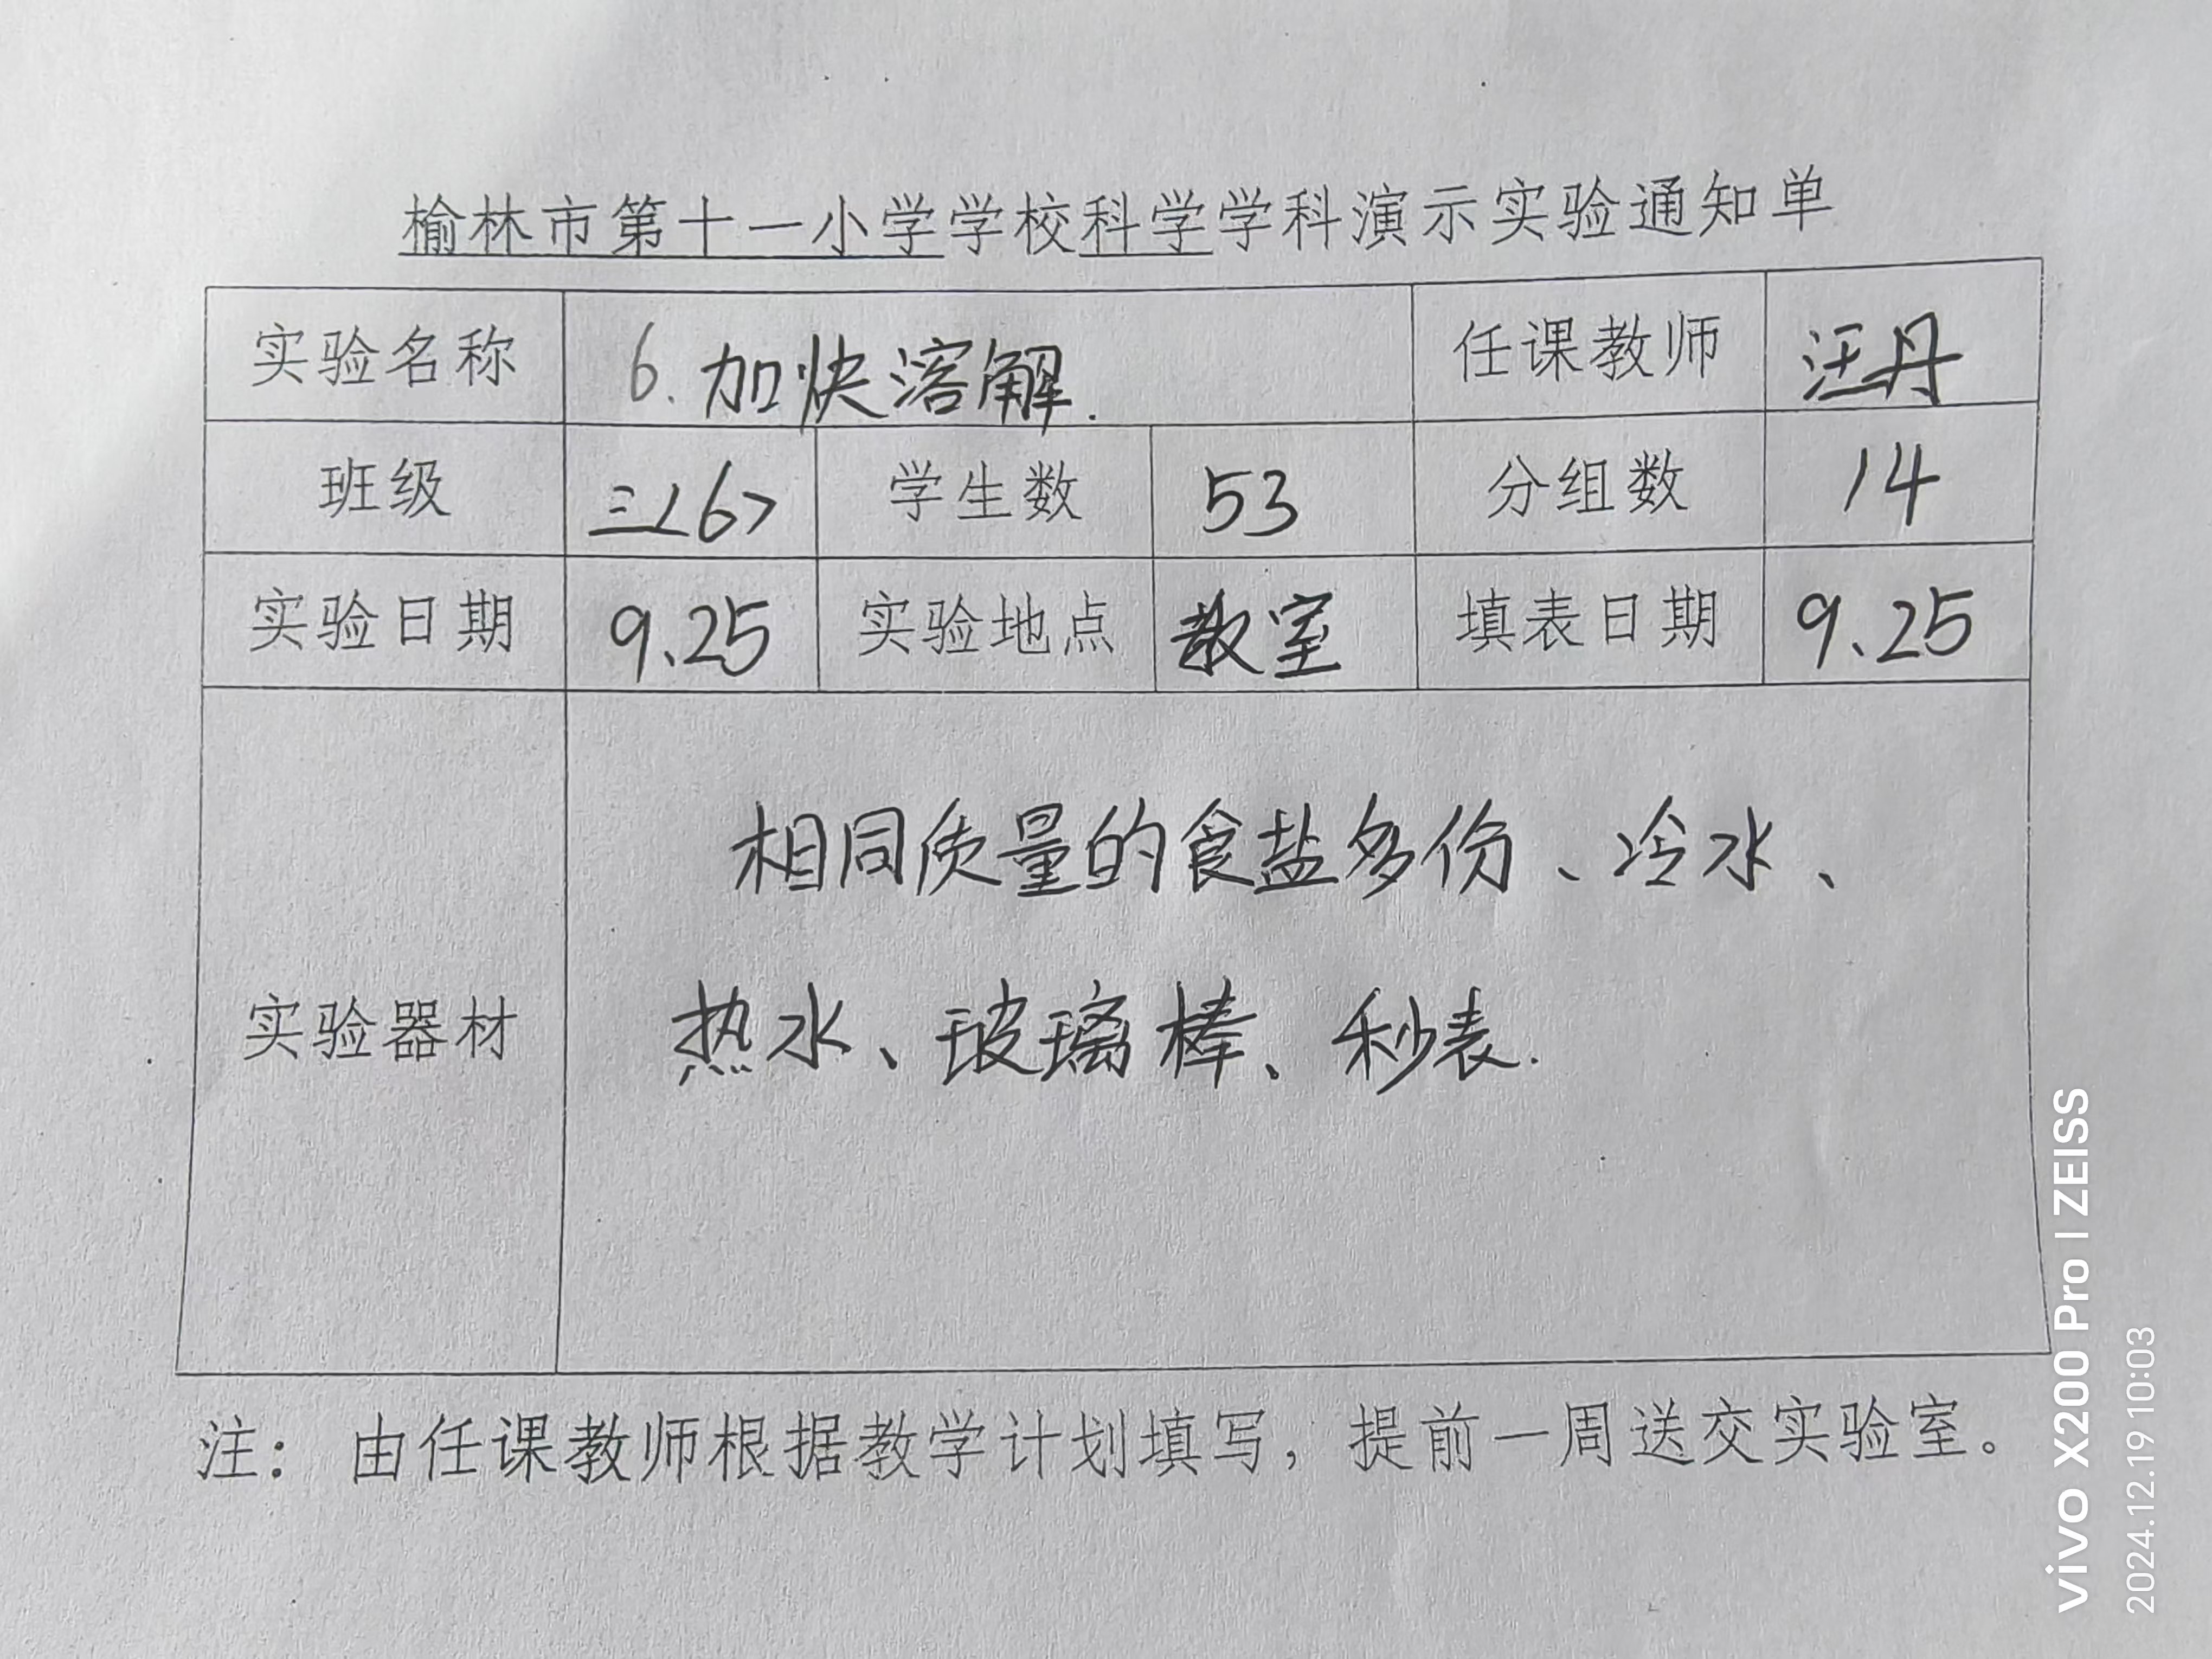 榆林市第十一小学学校科学学科演示实验通知单
实验名称 6.加快溶解. 任课教师 汪丹
班级 三<6> 学生数 53 分组数 14
实验日期 9.25 实验地点 教室 填表日期 9.25
实验器材
相同质量的食盐多份、冷水、
热水、玻璃棒、秒表.
注： 由任课教师根据教学计划填写，提前一周送交实验室。
vivo X200 Pro | ZEISS
2024.12.19 10:03